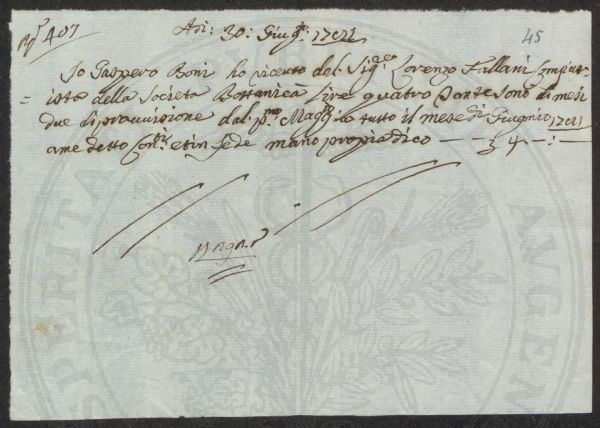 N° 407
Adi: 30: Giug.° 45
Io Gaspero Boni ho riceuto dal Sig.re Lorenzo Fallani Compu-
= ista della Società Bottanica Lire quattro Conte sono di mesi
due di provvisione dal p.mo Magg.o a tutto il mese di Giugnio
a me detto Con.ti et in fede mano propia dico — — 3 4 — : —
PROSPERITATI AUGEN